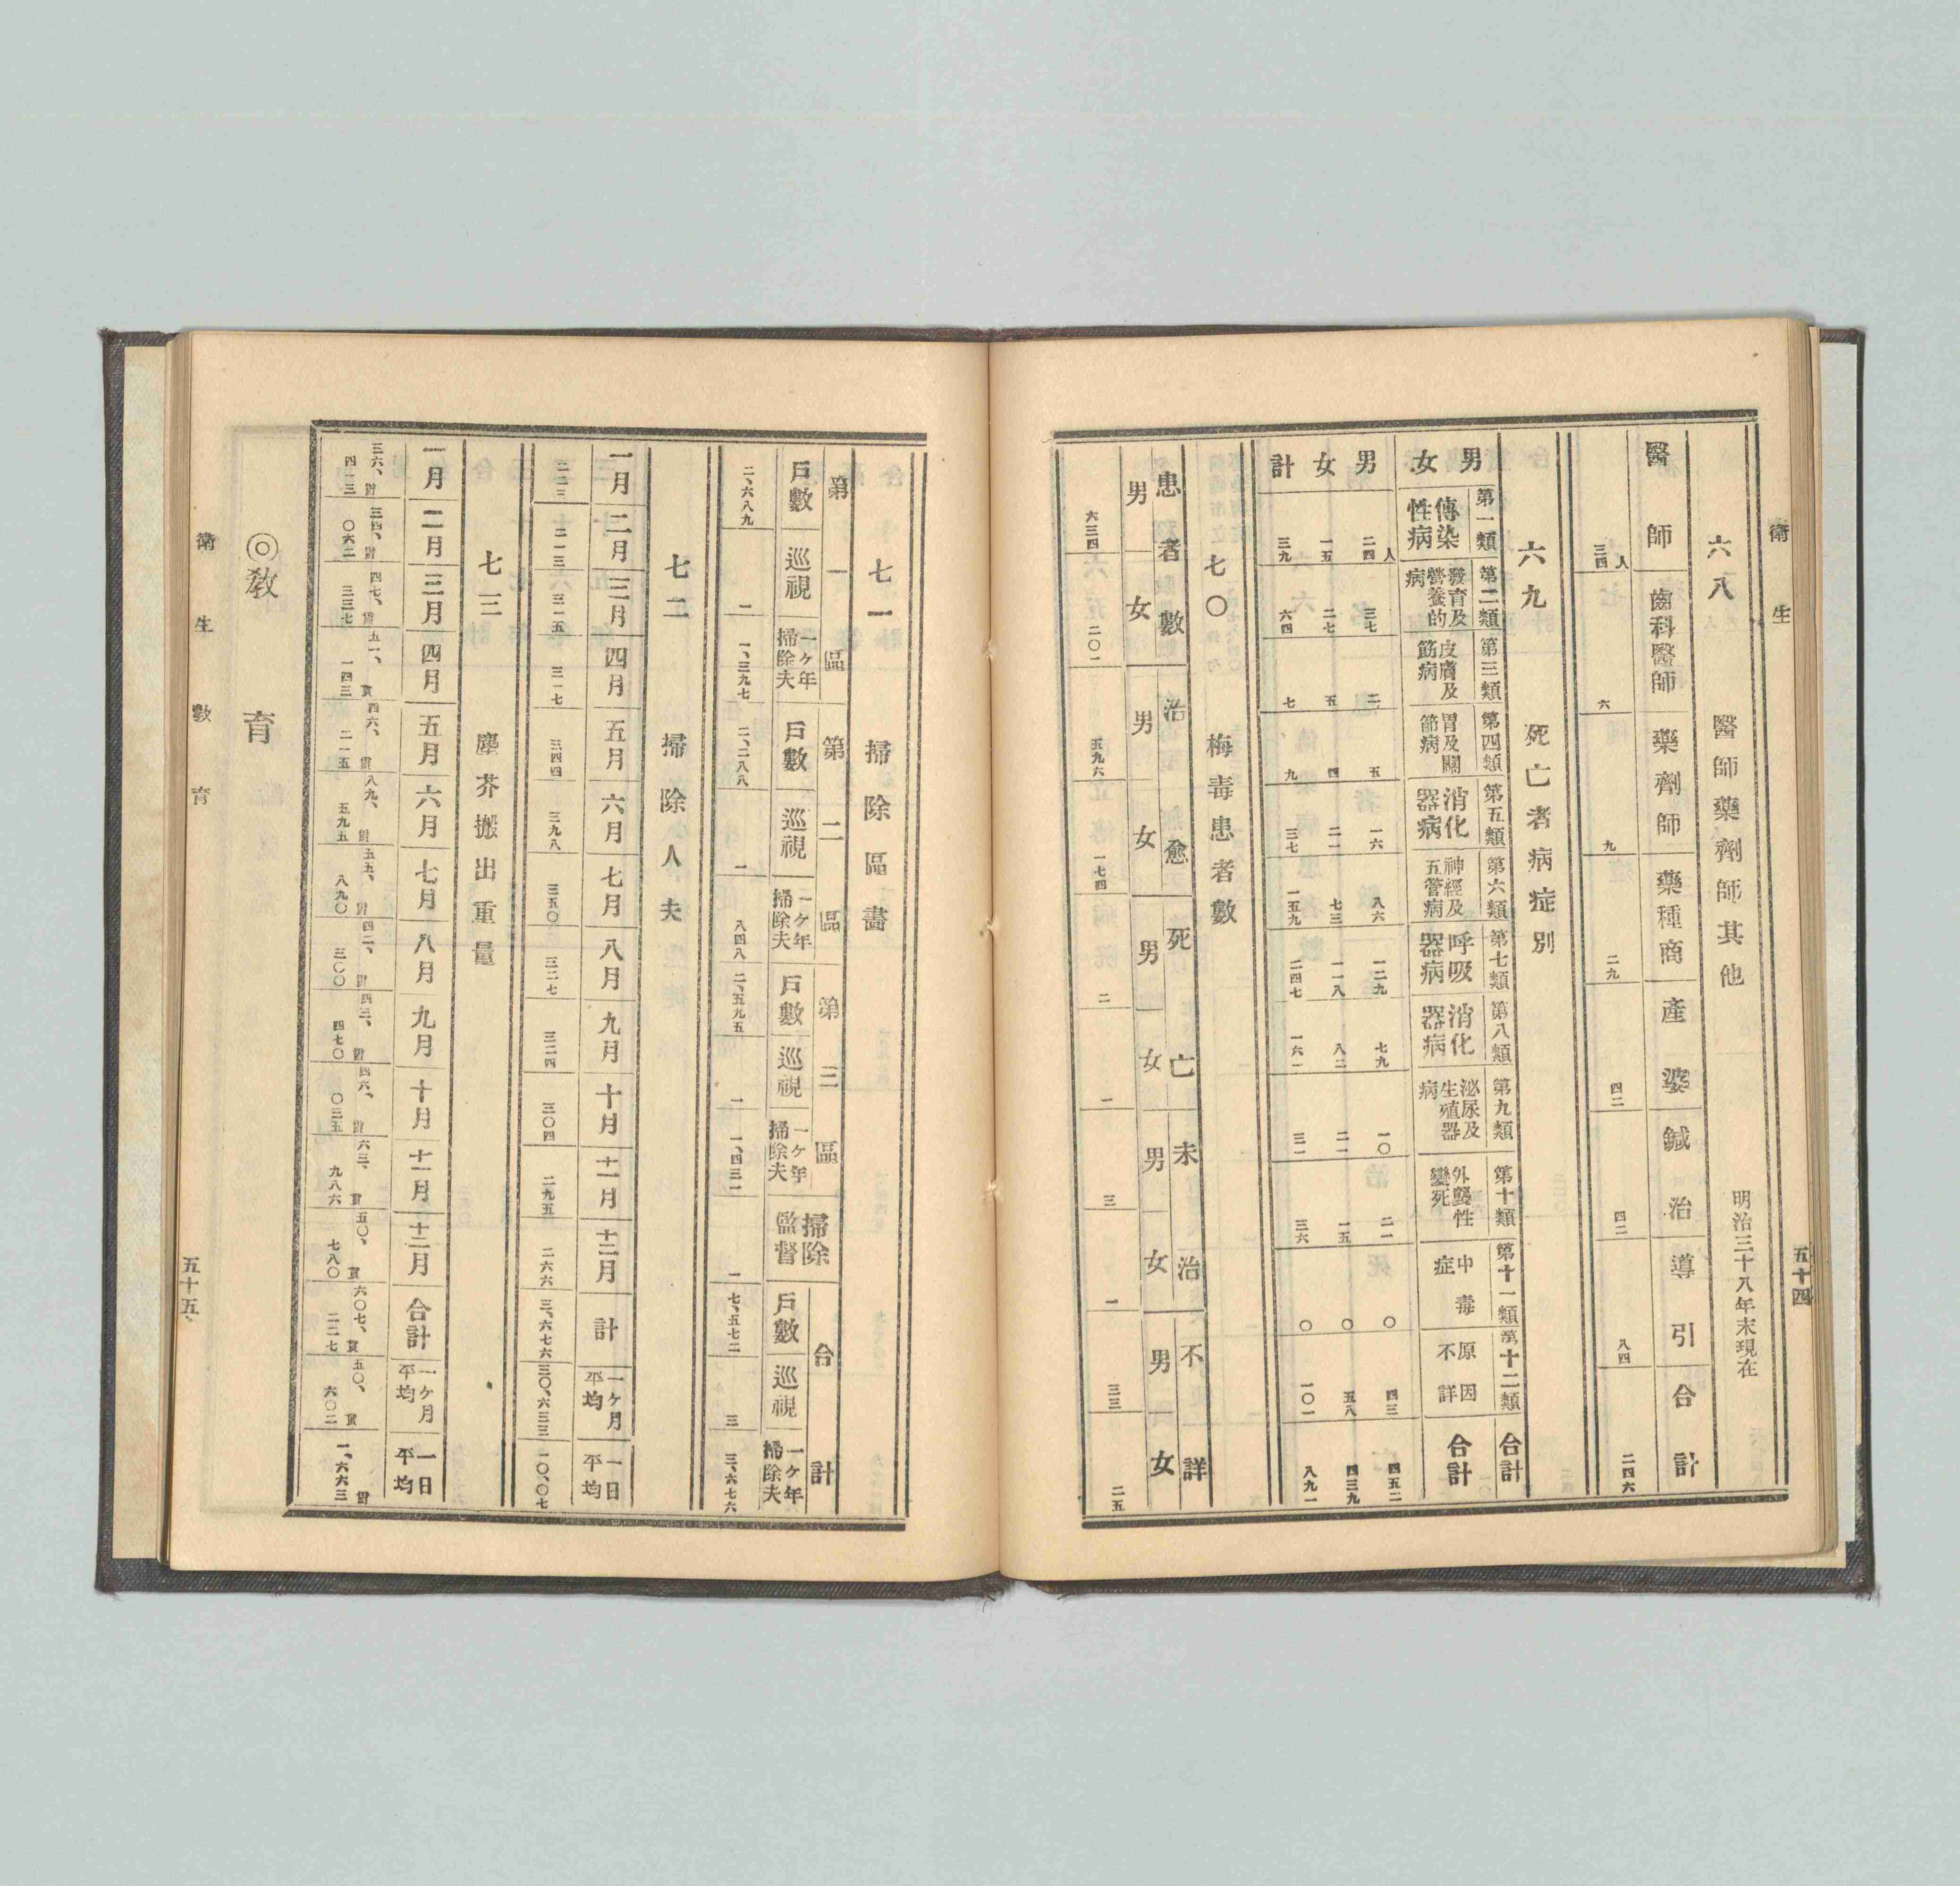 衛生
五十四
六八 醫師藥劑師其他 明治三十八年末現在
醫師 齒科醫師 藥劑師 藥種商 產婆 鍼治 導引 合計
三四人 六 九 二九 四二 四二 八四 二四六
六九 死亡者病症別
男女 第一類 第二類 第三類 第四類 第五類 第六類 第七類 第八類 第九類 第十類 第十一類 第十二類 合計
傳染性病 發育及營養的病 皮膚及筋病 胃及關節病 消化器病 神經及五管病 呼吸器病 消化器病 泌尿及生殖器病 外襲性變死 中毒症 原因不詳 合計
男 二四人 三七 二 五 一六 八六 一二九 七九 一〇 二一 〇 四三 四五二
女 一五 二七 五 四 二一 七三 一一八 八二 二一 一五 〇 五八 四三九
計 三九 六四 七 九 三七 一五九 二四七 一六一 三一 三六 〇 一〇一 八九一
七〇 梅毒患者數
患者數 治愈 死亡 未治 不詳
男 女 男 女 男 女 男 女 男 女
六三四 二〇一 五九六 一七四 二 一 三 一 三三 二五
七一 掃除區畫
第一區 第二區 第三區 掃除監督 合計
戶數 巡視 一ヶ年掃除夫 戶數 巡視 一ヶ年掃除夫 戶數 巡視 一ヶ年掃除夫 戶數 巡視 一ヶ年掃除夫
二、六八九 一 一、三九七 二、二八八 一 八四八 二、五九五 一 一、四三一 一 七、五七二 三 三、六七六
七二 掃除人夫
一月 二月 三月 四月 五月 六月 七月 八月 九月 十月 十一月 十二月 計 一ヶ月平均 一日平均
二二三 二一三 三一五 三一七 三四四 三九八 三五〇 三二七 三二四 三〇四 二九五 二六六 三、六七六 三〇、六三三 一〇、〇七
七三 塵芥搬出重量
一月 二月 三月 四月 五月 六月 七月 八月 九月 十月 十一月 十二月 合計 一ヶ月平均 一日平均
三六、四一三貫 三四、〇六二貫 四七、三三七貫 五一、一四三貫 四六、二一五貫 八九、五九五貫 五五、八九〇貫 四二、三〇〇貫 四三、四七〇貫 四六、〇三五貫 六三、九八六貫 五〇、七八〇貫 六〇七、二二七貫 五〇、六〇二貫 一、六六三貫
◎敎育
衛生 敎育
五十五